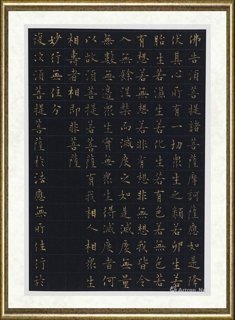 佛告須菩提諸菩薩摩訶薩應如是降
伏其心所有一切眾生之類若卵生若
胎生若濕生若化生若有色若無色若
有想若無想若非有想非無想我皆令
入無餘涅槃而滅度之如是滅度無量
無數無邊眾生實無眾生得滅度者何
以故須菩提若菩薩有我相人相眾生
相壽者相即非菩薩
妙行無住分
復次須菩提菩薩於法應無所住行於